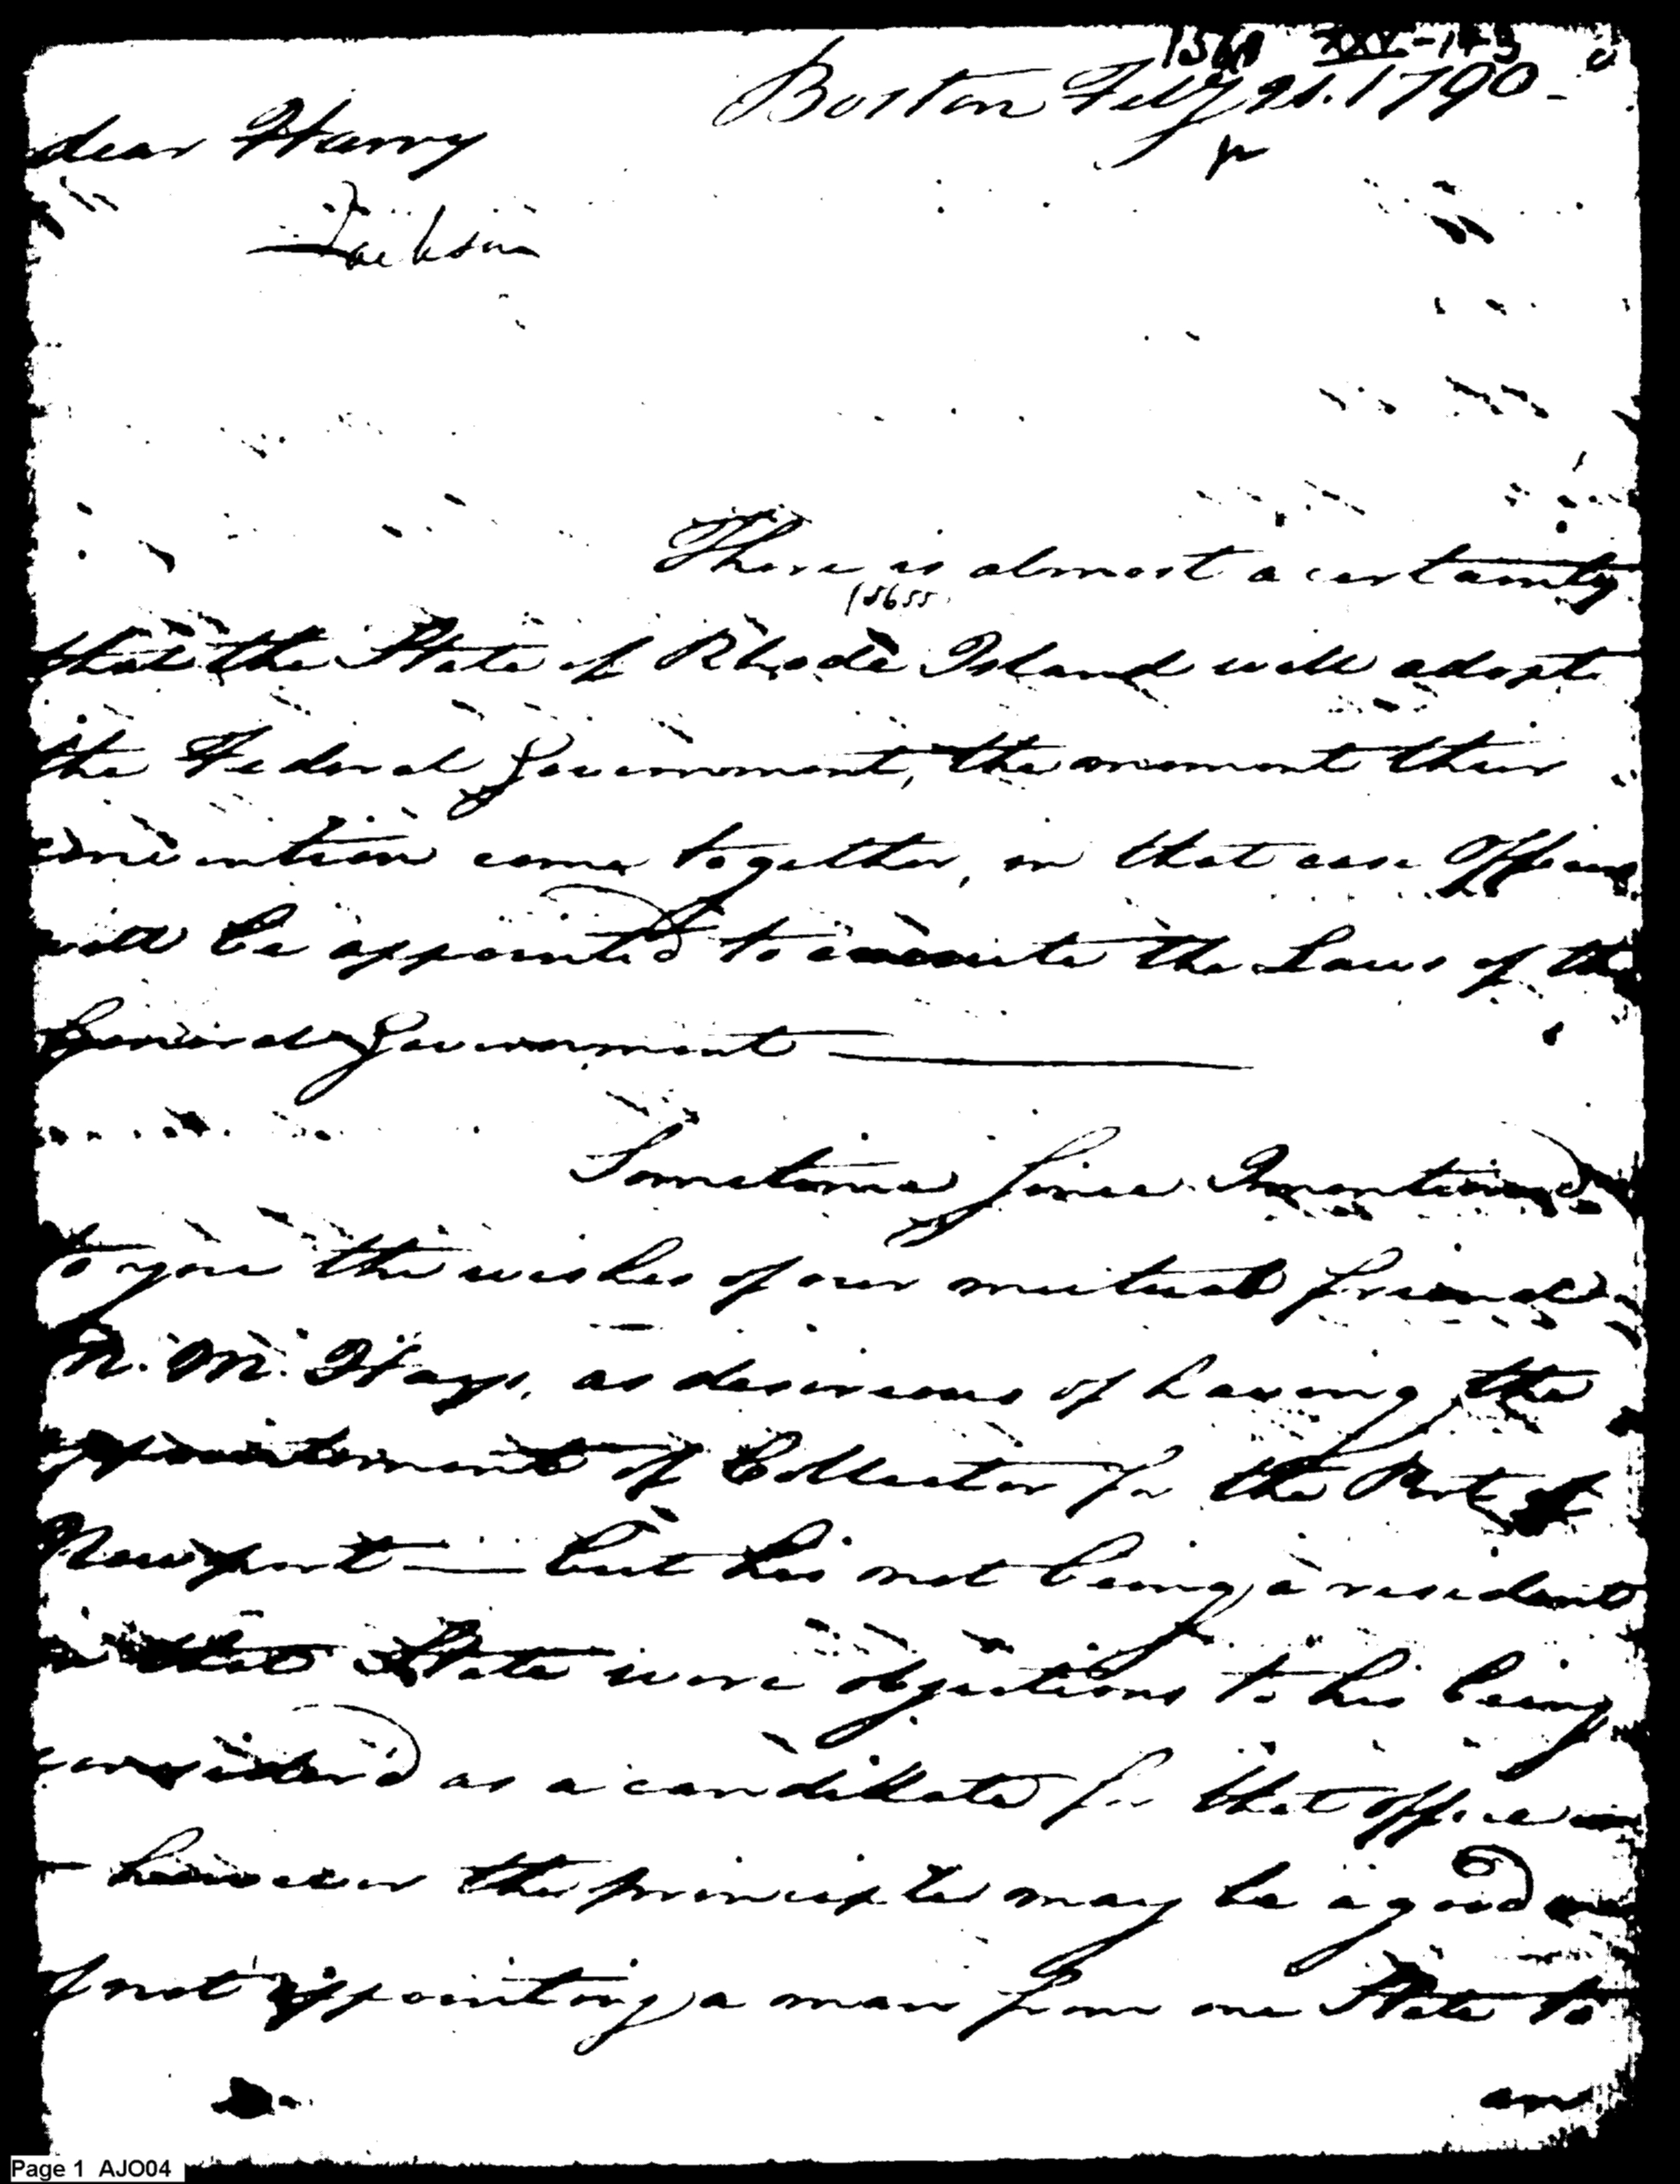 XXV-113
Boston Feby 21. 1790-
dear Harry
Jackson
There is almost a certainty
15655
that the State of Rhode Island will adopt
the Federal Government, the moment their
convention come together, in that case Officers
will be appointed to execute the Laws of the
General Government
Sometime since I mentioned
to you the wishes of our mutual friend
M. M. Hays, as desireous of having the
appointment of Collector for the Port of
Newport — but his not being a resident
in that State were objections to his being
consider'd as a candidate for that office
— however the principle may be a good one
of not appointing a man from one State to
an
Page 1 AJO04